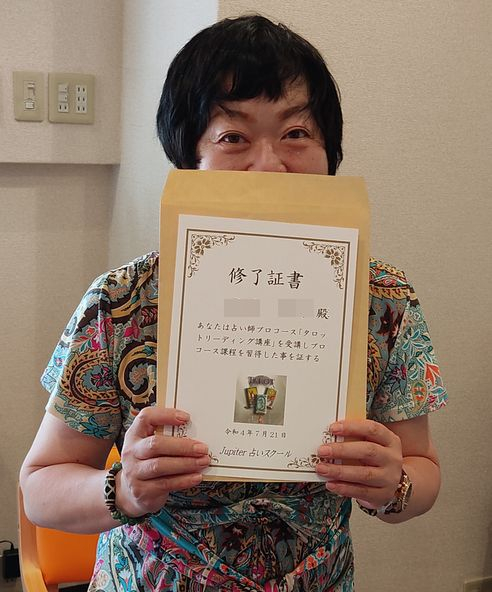 修了証書
殿
あなたは占い師プロコース「タロッ
トリーディング講座」を受講しプロ
コース課程を習得した事を証する
TAROT
令和4年7月21日
Jupiter 占いスクール